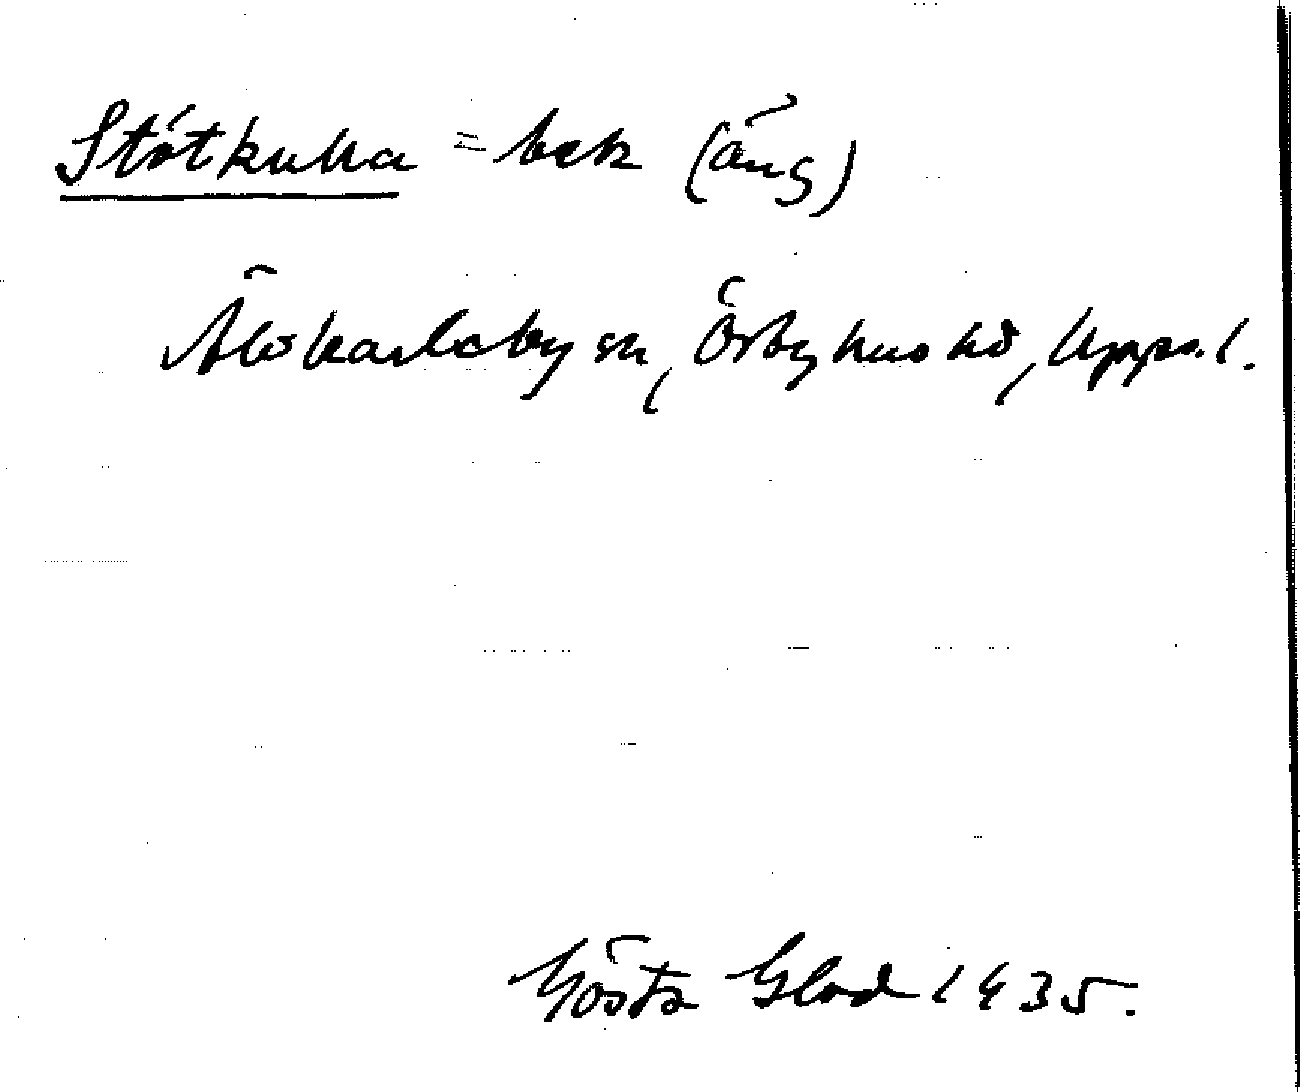 Stötkulla = bek (äng)
Älvkarleby sn, Örbyhus hd, Upps. l.
Gösta Glad 1935.